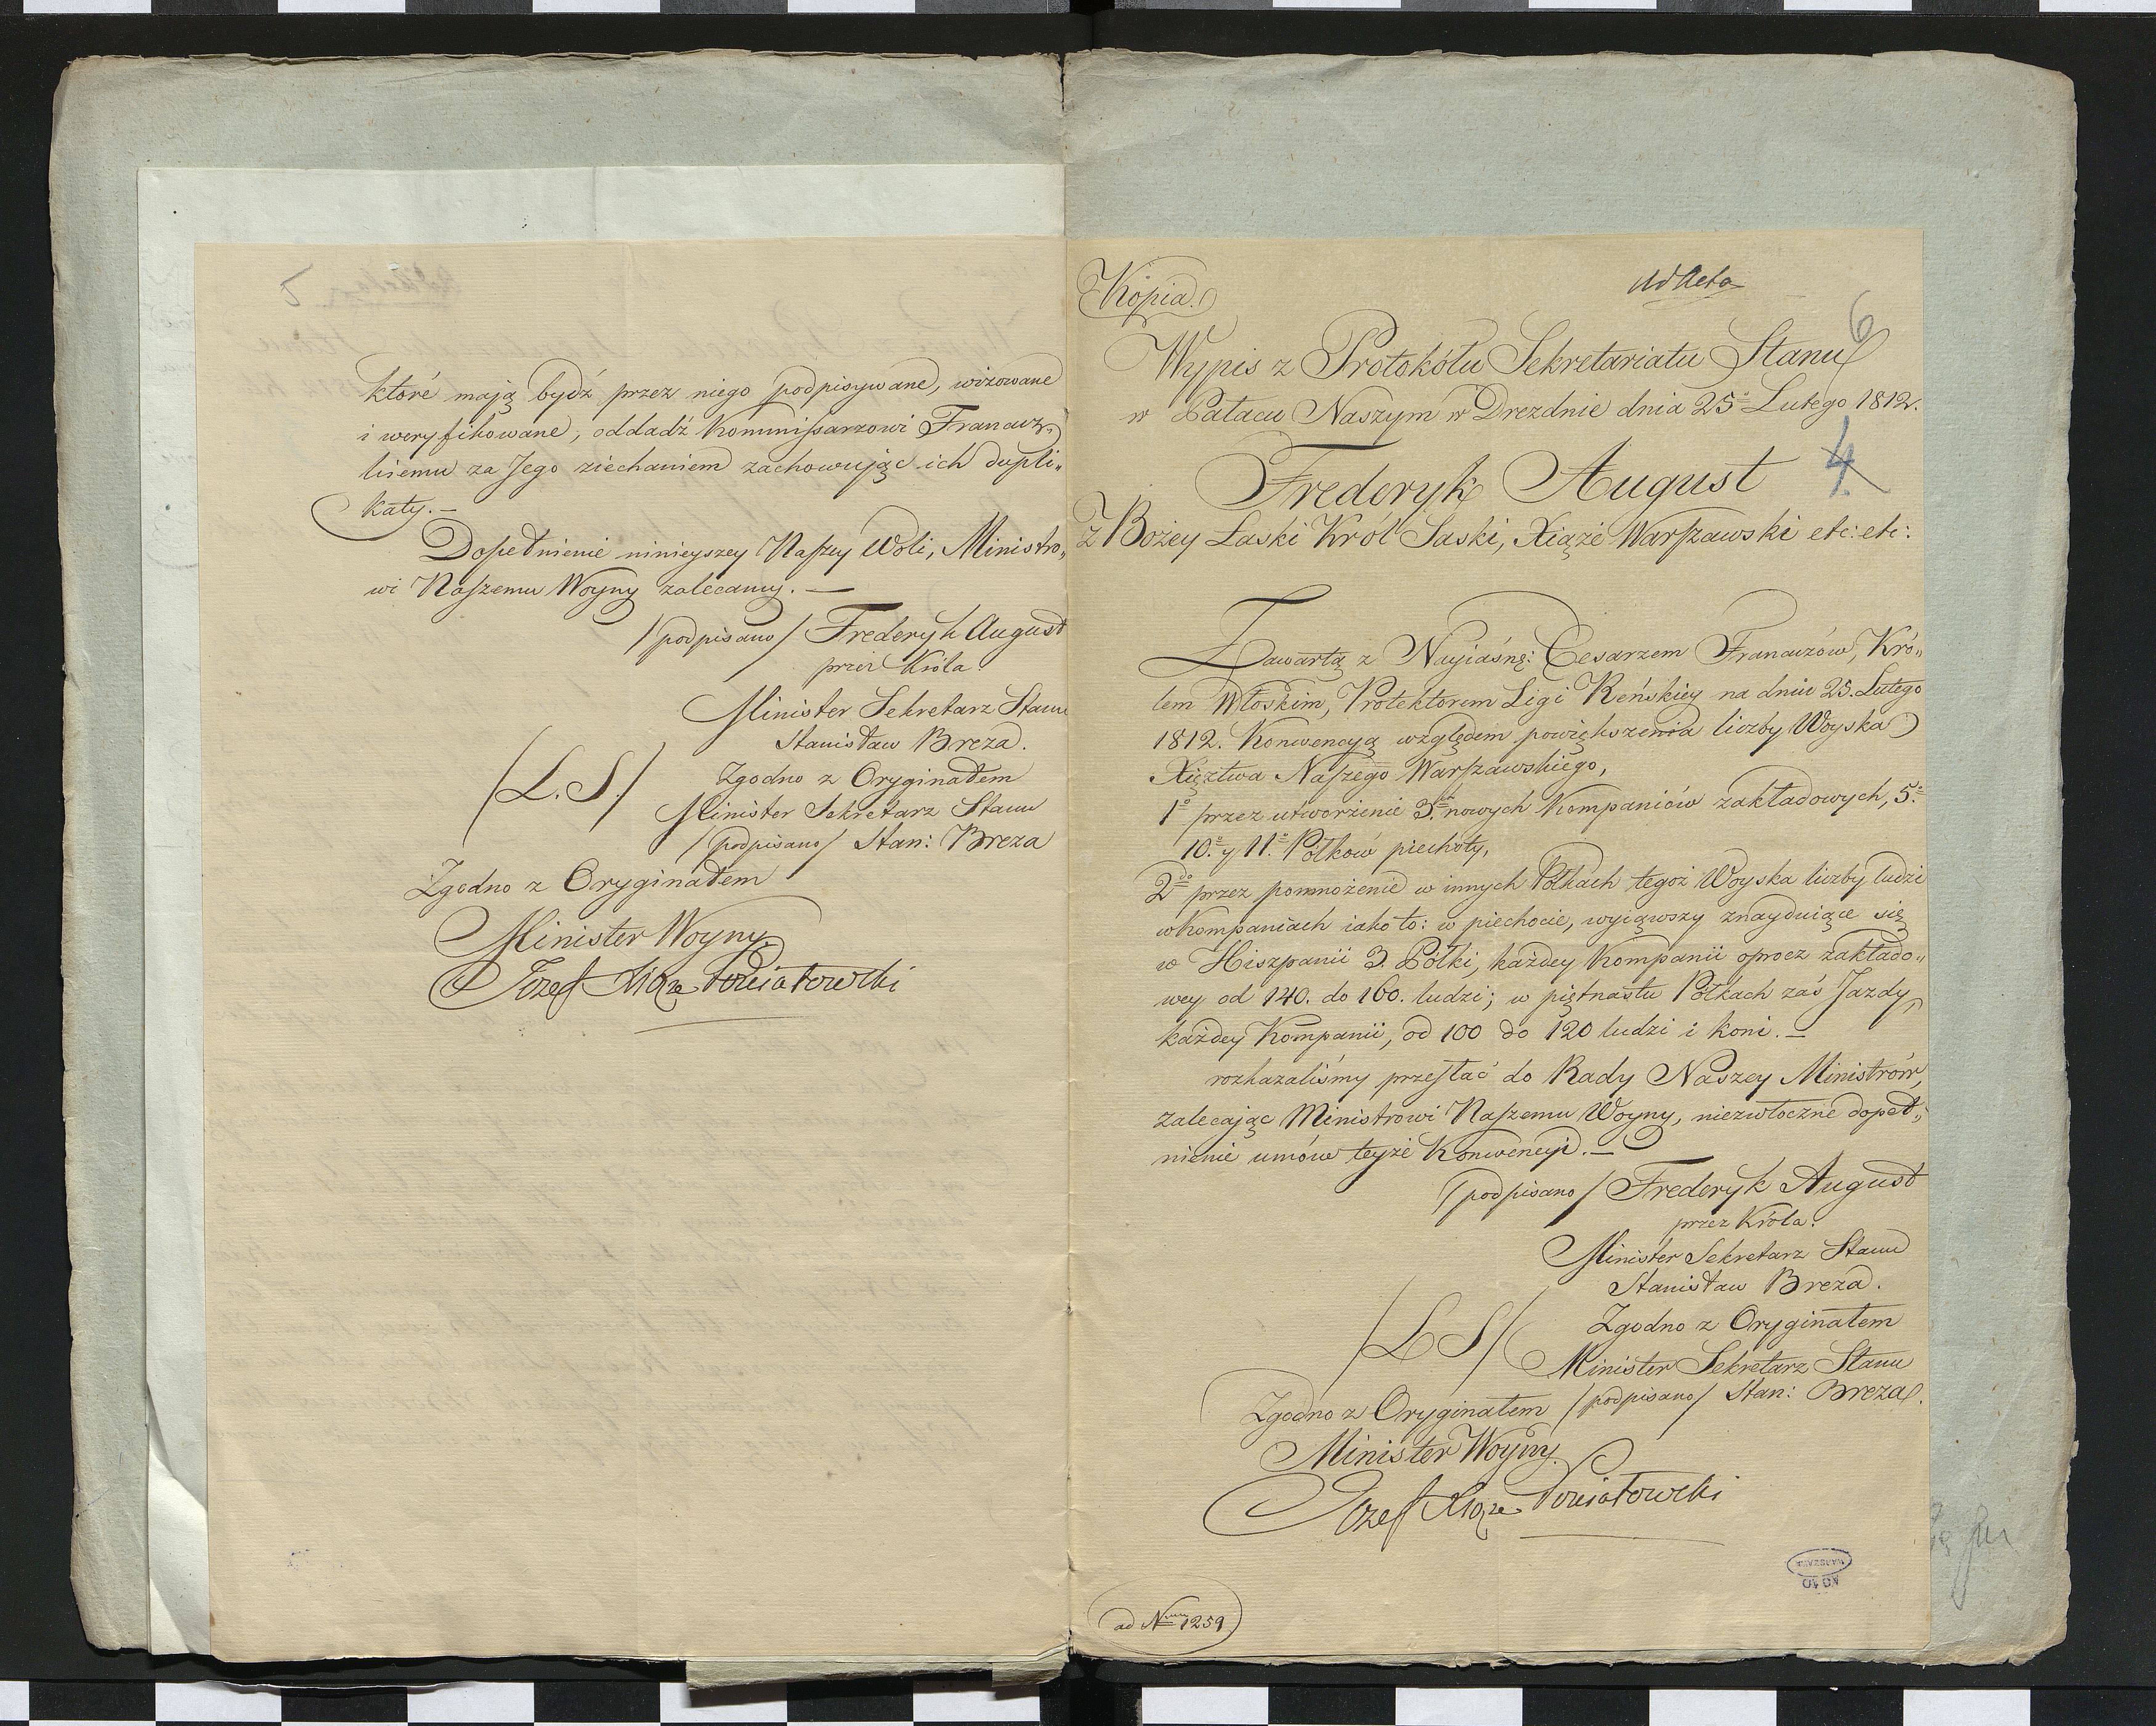 które mają bydź przez niego podpisywane, wizowane
i weryfikowane, oddadź Kommissarzowi Francuz„
kiemu za Jego ziechaniem zachowując ich dupli„
katy.—
Dopełnienie ninieyszey Naszey Woli, Ministro„
wi Naszemu Woyny zalecamy.—
/podpisano/ Frederyk August
przez Króla
Minister Sekretarz Stanu
Stanisław Breza.
/L.S./ Zgodno z Oryginałem
Minister Sekretarz Stanu
/podpisano/ Stan: Breza
Zgodno z Oryginałem
Minister Woyny
Jozef Xiąże Poniatowski
Kopia.
Ad Acta
6
Wypis z Protokółu Sekretariatu Stanu
w Pałacu Naszym w Dreznie dnia 25º Lutego 1812.
4.
Frederyk August
z Bożey Łaski Król Saski, Xiąże Warszawski etc: etc:
Zawartą z Nayiaśnę: Cesarzem Francuzów, Kró„
lem Włoskim, Protektorem Ligi Reńskiey na dniu 25. Lutego
1812. Konwencyą względem powiększenia liczby Woyska
Xięztwa Naszego Warszawskiego,
1º przez utworzenie 3. nowych Kompaniów zakładowych, 5.º
10.º y 11.º Półków piechoty,
2do przez pomnożenie w innych Półkach tegoż Woyska liczby ludzi
w Kompaniach iako to: w piechocie, wyiąwszy znayduiące się
w Hiszpanii 3. Półki, każdey Kompanii oprocz zakłado„
wey od 140. do 160. ludzi; w piętnastu Półkach zaś Jazdy,
każdey Kompanii, od 100 do 120 ludzi i koni.—
rozkazaliśmy przesłać do Rady Naszey Ministrów,
zalecając Ministrowi Naszemu Woyny, niezwłoczne dopeł„
nienie umów teyże Konwencyi.—
/podpisano/ Frederyk August
przez Króla.
Minister Sekretarz Stanu
Stanisław Breza.
/L S/ Zgodno z Oryginałem
Minister Sekretarz Stanu
/podpisano/ Stan: Breza.
Zgodno z Oryginałem
Minister Woyny
Jozef Xiąże Poniatowski
AGAD
WARSZAWA
ad Num 1259